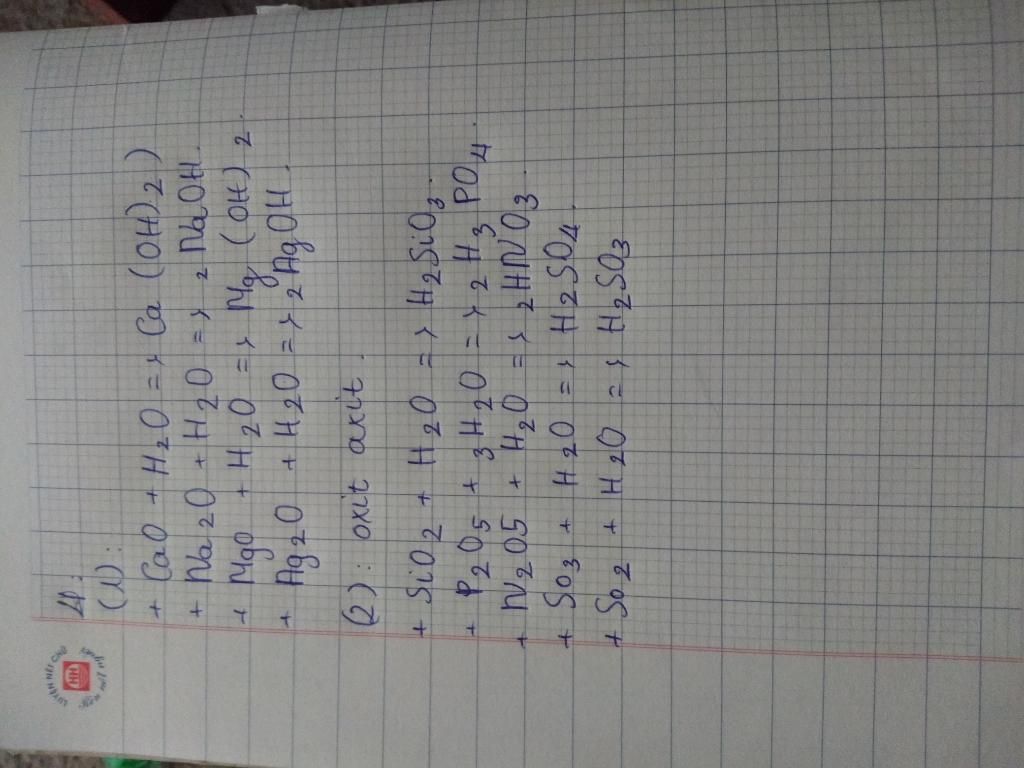 LUYỆN NÉT CHỮ
HH
4:
(1):
+ CaO + H2O => Ca (OH)2)
+ Na2O + H2O => 2 NaOH.
+ MgO + H2O => Mg (OH) 2.
+ Ag2O + H2O => 2 AgOH.
(2): oxit axit.
+ SiO2 + H2O => H2SiO3.
+ P2O5 + 3H2O => 2 H3 PO4.
+ N2O5 + H2O => 2HNO3.
+ SO3 + H2O => H2SO4.
+ SO2 + H2O => H2SO3